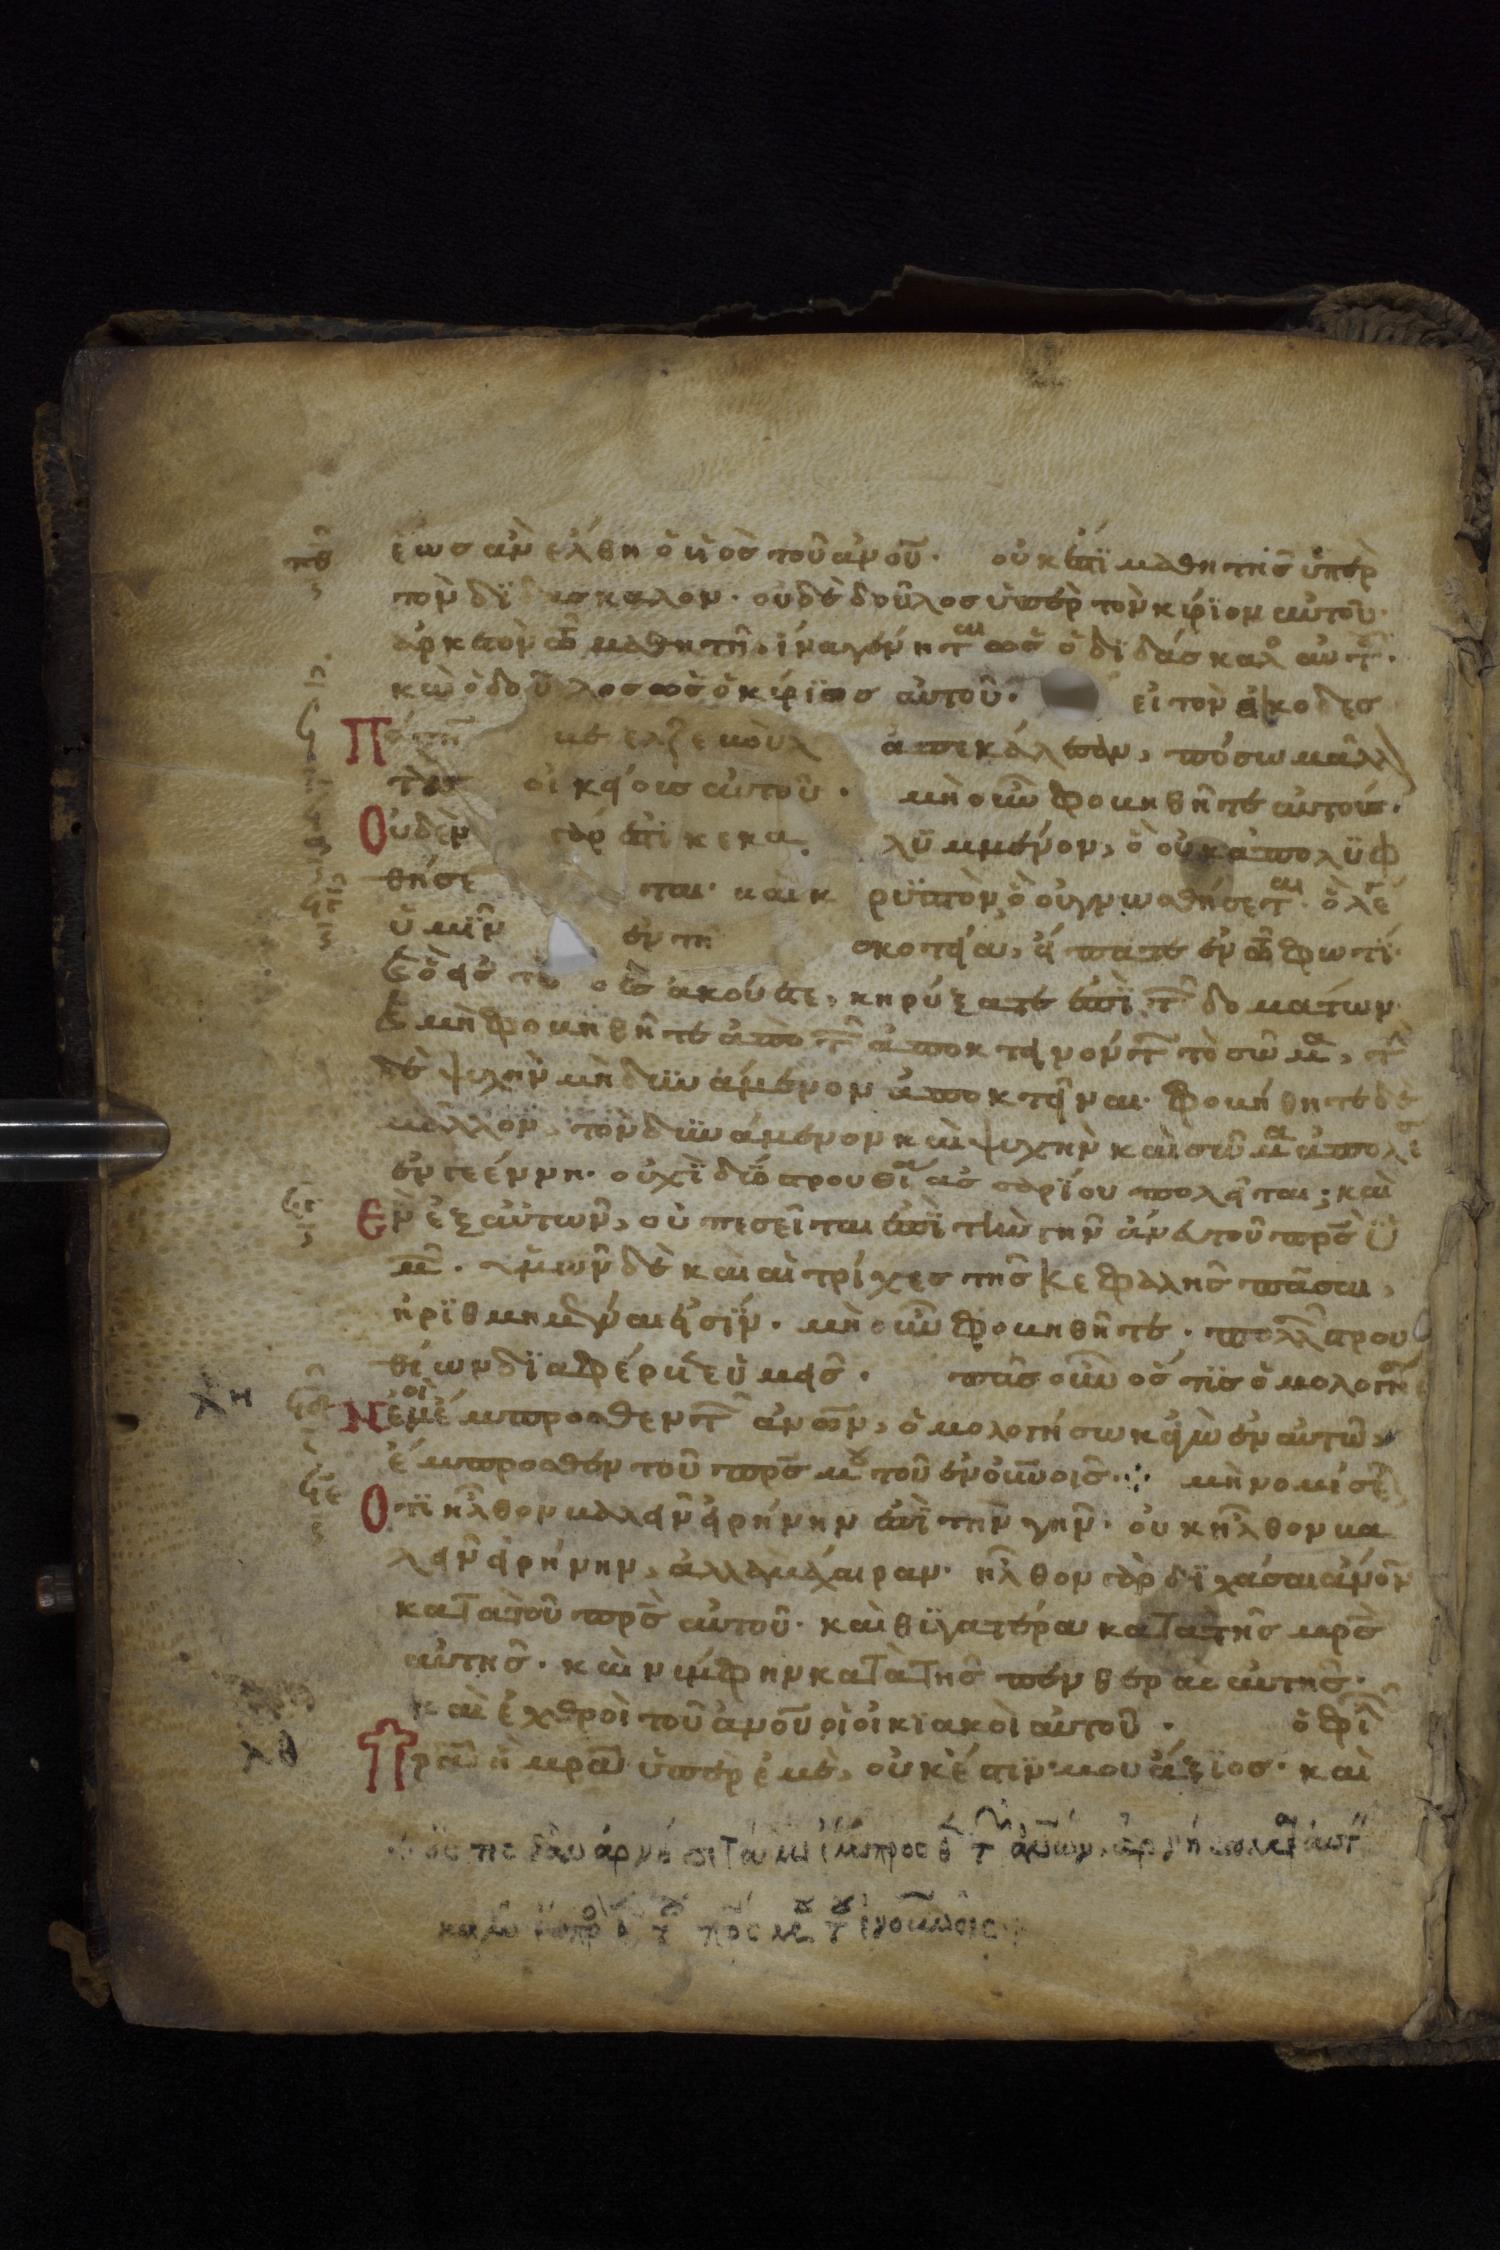 ἕως ἂν ἔλθη ὁ ὑιὸς τοῦ ἀνου. οὐκ ἔστϊ μαθητὴς ὑπὲρ
τὸν δϊδάσκαλον. οὐδὲ δοῦλος ὑπὲρ τὸν κύρϊον αὐτοῦ.
ἀρκετὸν τῶ μαθητῆ, ἵνα γένηται ὡς ὁ δϊδάσκαλ αὐτ.
καὶ ὁ δοῦλος ὡς ὁ κύρϊος αὐτοῦ. εἰ τὸν οἰκοδεσ
Πότην βεελζεβοὺλ ἀπεκάλεσαν, πόσω μᾶλλ
τοὺς οἰκείους αὐτοῦ. μὴ οὖν φοβηθῆτε αὐτούς.
Οὐδὲν γάρ ἐστϊ κεκα λϋμμένον, ὃ οὐκ ἀποκαλϋφ
θήσε ται. καὶ κ ρϋπτὸν, ὃ οὐ γνωσθήσεται. ὃ λέγ
ὑμῖν ἐν τῆ σκοτεία, εἴπατε ἐν τῶ φωτί.
καὶ ὃ εἰς τὸ οὖς ἀκούετε, κηρύξατε ἐπὶ τῶν δοματων
καὶ μὴ φοβηθῆτε ἀπὸ τῶν ἀποκτεινόντων τὸ σῶμα, τὴν
δὲ ψυχὴν μὴ δϋναμένων ἀποκτεῖναι. φοβήθητε δὲ
μᾶλλον, τὸν δϋνάμενον καὶ ψυχὴν καὶ σῶμα ἀπολέ
ἐν γεέννη. οὐχὶ δύο στρουθία ἀσσαρίου πωλεῖται; καὶ
Ἓν ἐξ αὐτῶν, οὐ πεσεῖται ἐπὶ τὴν γῆν ἄνευ τοῦ πρς ὑ
μῶν. ὑμῶν δὲ καὶ αἱ τρίχες τῆς κεφαλῆς πᾶσαι,
ἠρϊθμημέναι εἰσίν. μὴ οὖν φοβηθῆτε. πολλῶν στρου
θίων δϊαφέρετε ὑμεῖς. πᾶς οὖν ὅστϊς ὁμολογή
Νἐμοὶ ἔμπροσθεν τῶν ἀνων, ὁμολογήσω κἀγὼ ἐν αὐτῶ,
ἔμπροσθεν τοῦ πρς μου τοῦ ἐν οὐνοις. μὴ νομίση
Ὅτϊ ἦλθον βαλεῖν εἰρήνην ἐπὶ τὴν γῆν. οὐκ ἦλθον βα
λεῖν εἰρήνην, ἀλλὰ μάχαιραν. ἦλθον γὰρ δϊχάσαι ἀνον
κατὰ τοῦ πρς αὐτοῦ. καὶ θϋγατέρα κατὰ τῆς μρς
αὐτῆς. καὶ νύμφην κατὰ τῆς πενθερας αὐτῆς.
καὶ ἐχθροὶ τοῦ ἀνου οἱ οἰκϊακοὶ αὐτοῦ. ὁ φιλῶν
Πρα ἢ μρα ὑπὲρ ἐμὲ, οὐκ ἔστϊν μου ἄξϊος. καὶ
ὅστις δ ἂν ἀρνήσηταί με ἔμπροσθ τ ἀνων, ἀρνήσομαι αὐτ
καγὼ ἔμπροσθ τ πρς μου τ ἐν οὐνοις
λη
λθ